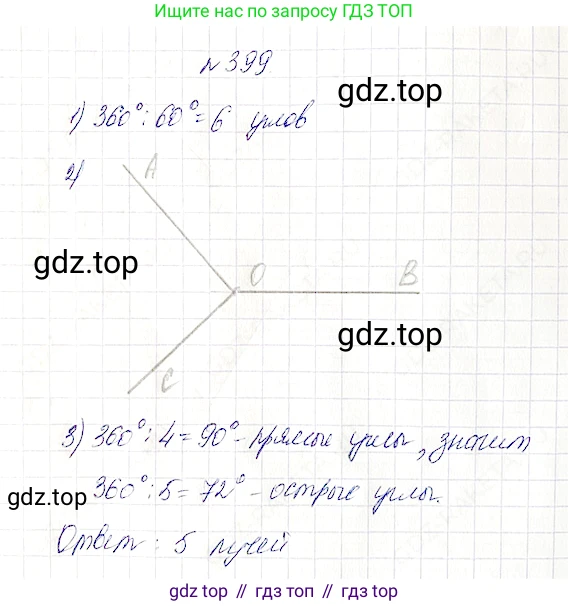 Ищите нас по запросу ГДЗ ТОП
№399
gdz.top
1) 360°:60°=6 углов
2)
A
gdz.top
O
B
gdz.top
C
3) 360°:4=90° - прямые углы, значит
gdz.top
360°:5=72° - острые углы.
Ответ: 5 лучей
gdz.top // гдз.топ // гдз.top